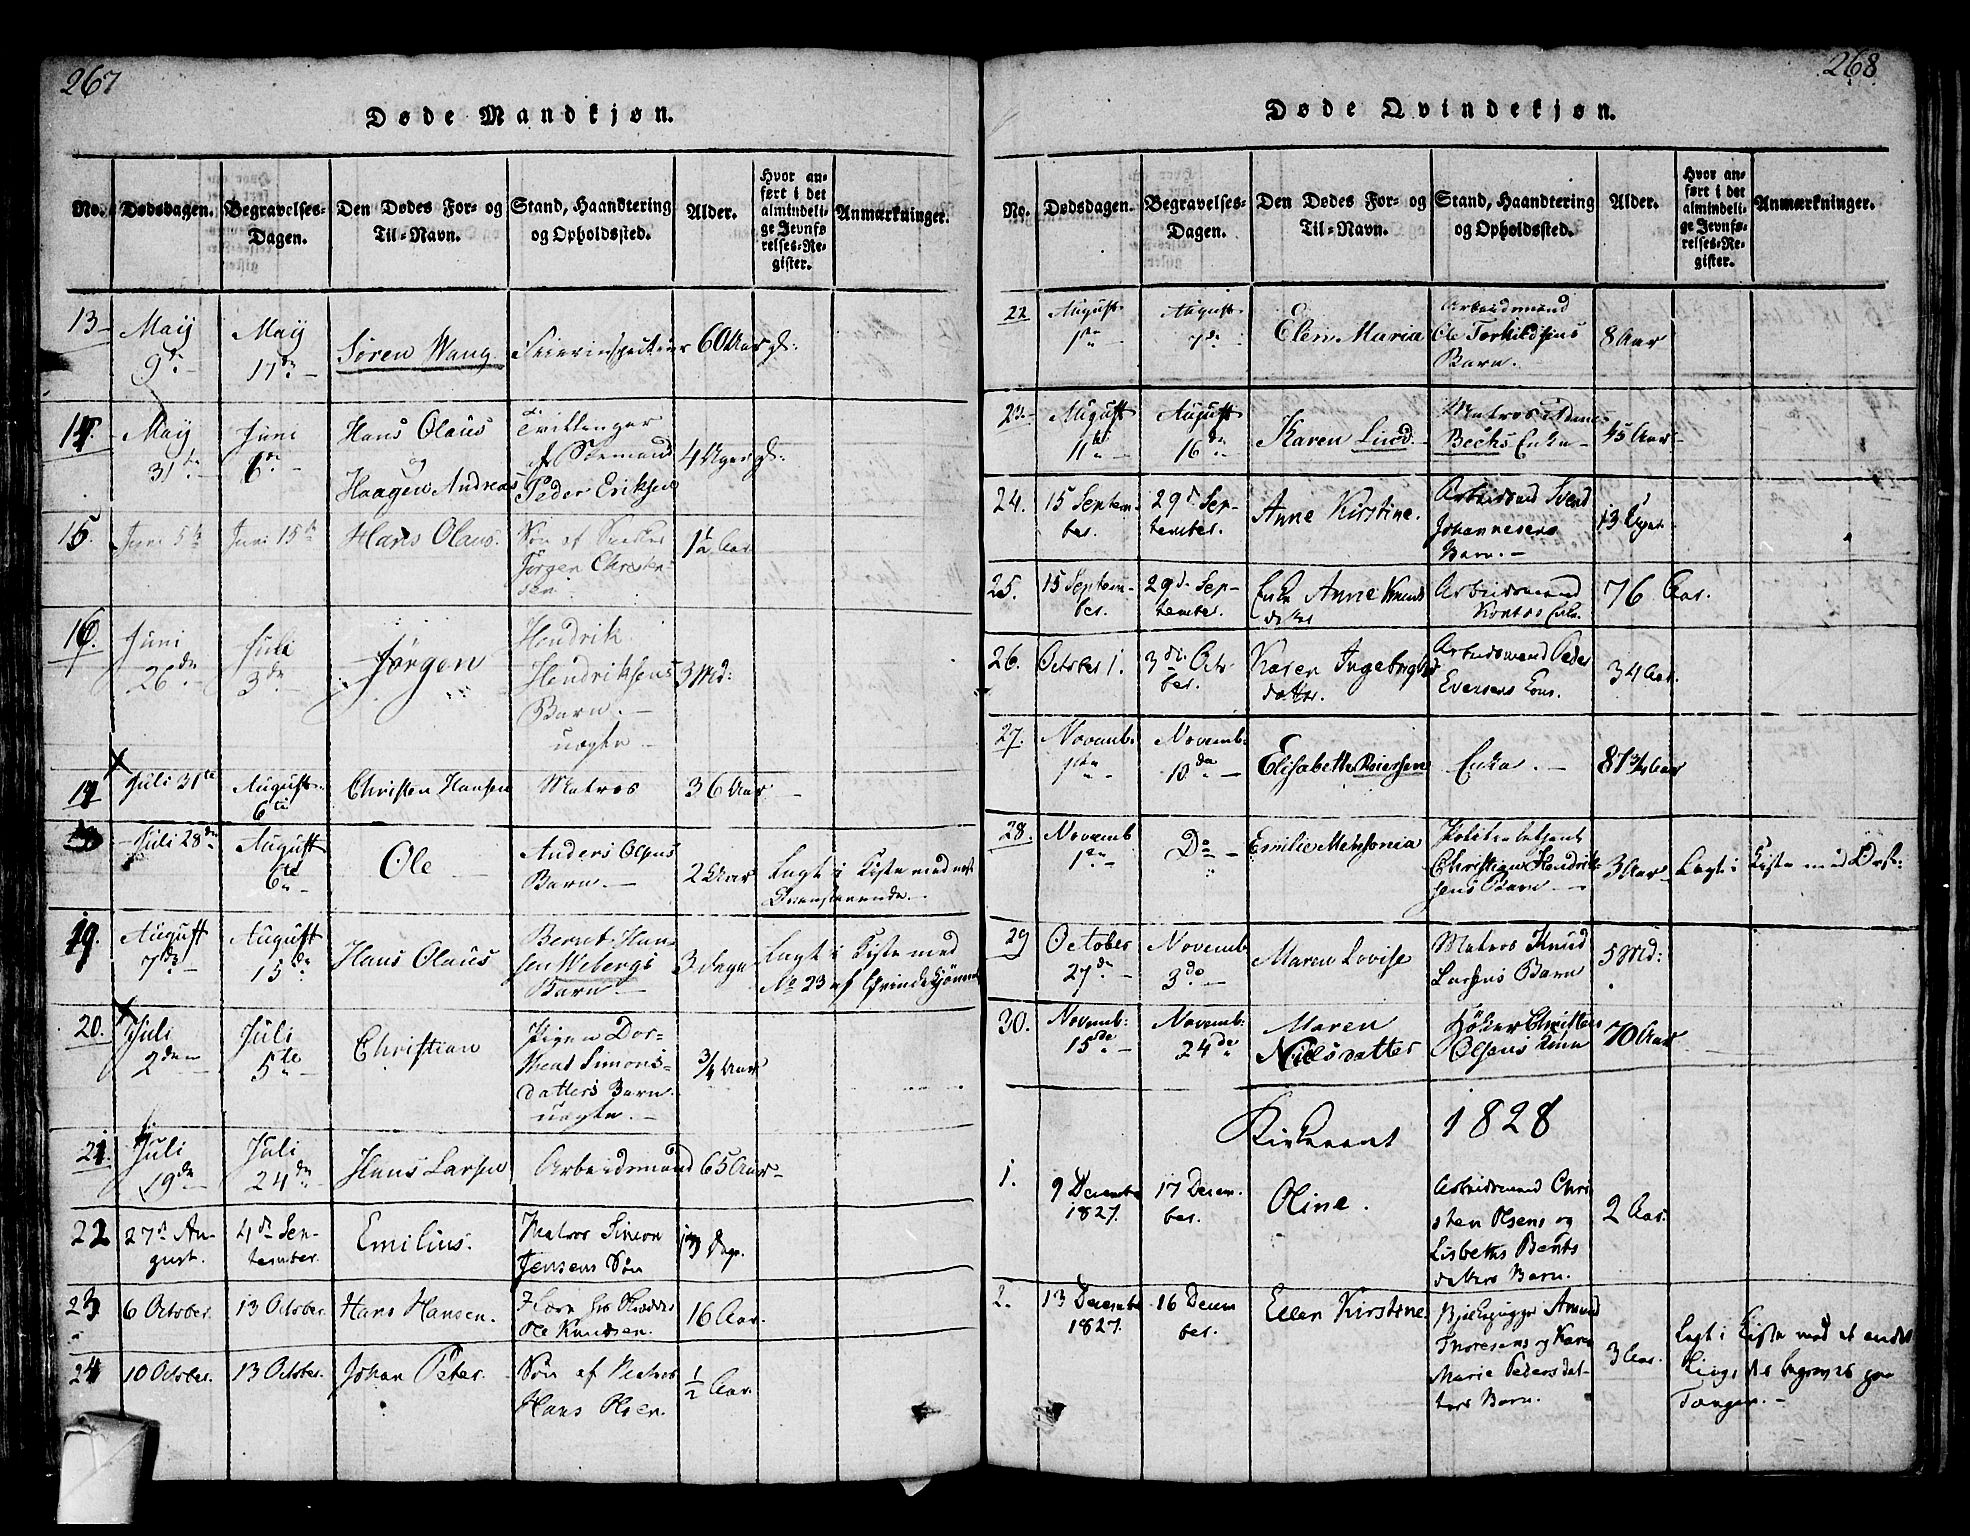 267
Døde Mandkjøn.
No. Dødsdagen. Begravelses-Dagen. Den Dødes For- og Til-Navn. Stand, Haandtering og Opholdssted. Alder. Hvor anført i det almindelige Jevnførelses-Register. Anmærkninger.
13 Maij 9de Maij 17de Søren Wang 60 Aar gl:
14. Maij 31te Juni 6te Hans Olaus og Haagen Andreas Tvillenger af Søemand Peder Eriksen 4 Uger gl:
15. Juni 5te Juni 15de Hans Olaus. Søn af Jørgen Christensen 1½ Aar
16. Juni 26de Juli 3de Jørgen Hendrik Hendriksens Barn. uægte 3 Md:
17 Juli 31te August 6te Christen Hansen Matros 36 Aar
Juli 28de August 6te Ole Anders Olsens Barn. 2 Aar Lagt i Kiste med
19. August 7de August 15de Hans Olaus Bernt Hansen Webergs Barn. 3 Dage Lagt i Kiste med No 23 af Qvindekjønnet
20. Juli 2den Juli 5te Christian Pigen Dorthea Simonsdatters Barn uægte. ¾ Aar
21. Juli 19de Juli 24de Hans Larsen Arbeidsmand 65 Aar
22 27de August. 4de September. Emilius. Matros Simon Jensens Søn Dage.
23 6 October. 13 October. Hans Hansen. Ole Knudsen. 16 Aar.
24 10 October. 13 October. Johan Peter. Søn af Matros Hans Olsen. ½ Aar.
268
Døde Qvindekjøn.
No. Dødsdagen. Begravelses-Dagen. Den Dødes For- og Til-Navn. Stand, Haandtering og Opholdssted. Alder. Hvor anført i det almindelige Jevnførelses-Register. Anmærkninger.
22 August 1ste August 7de Elen Maria Arbeidsmand Ole Torkildsens Barn. 8 Aar
23. August 11te August 16de Karen Lind. Matros Becks Enke 45 Aar
24. 15 September. 29de September. Anne Kirstine. Arbeidsmand Svend Johannesens Barn. 13 Uger
25. 15 September. 29de September. Enke Anne Knudsdatter Arbeidsmand Enke. 76 Aar.
26. October 1. 3die October. Karen Ingebrigtsdatter. Arbeidsmand Peder Evensens Kone. 34 Aar.
27. Novemb: 1ste Novemb: 10de Elisabethe Enke. 87¾ Aar
28. Novemb 1ste Do Emilie Christian Hendriksens Barn 3 Aar Lagt i Kiste med
29 October 27de Novemb 3de Maren Lovise Matros Knud Larsens Barn 5 Md:
30. Novemb: 15de Novemb: 24de Maren Nielsdatter Høker Christen Olsens 70 Aar
Kirkeaaret 1828
1. 9 December 1827. 17 December. Oline. Arbeidsmand Christen Olsens og Lisbeths Bentsdatters Barn. 2 Aar.
2. 13 December 1827. 16 December. Ellen Kirstine. Amund Thoresens og Karen Marie Pedersdatters Barn. 3 Aar. Lagt i Kiste med et andet Liig, begravet paa Tangen.